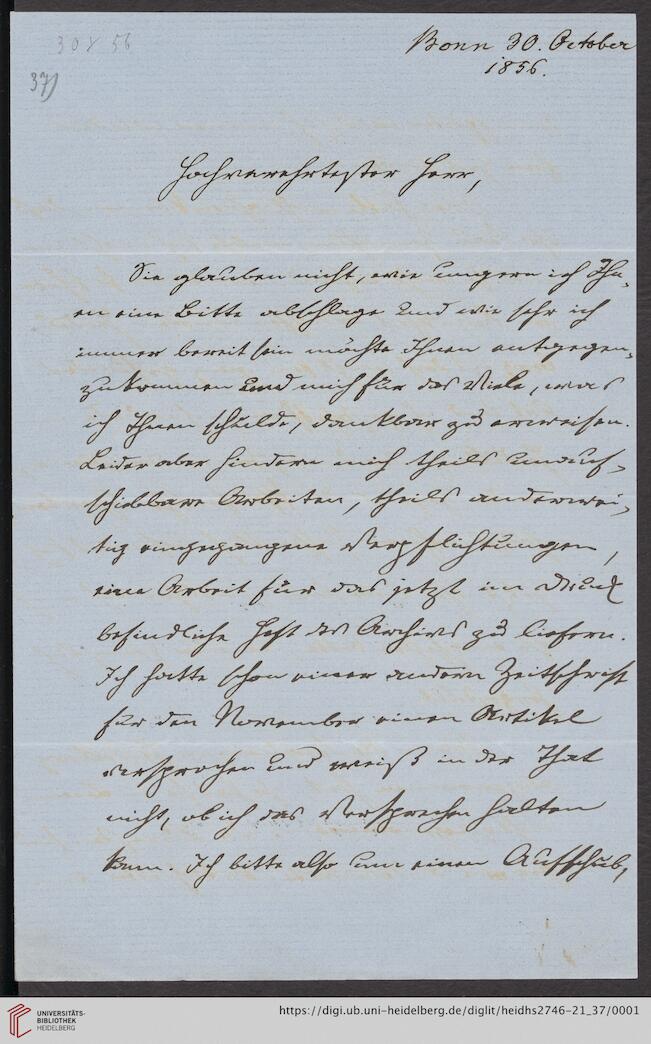 30 8 56
37)
Bonn 30. October
1856.
Hochverehrtester Herr,
Sie glauben nicht, wie ungern ich Ih-
nen eine Bitte abschlage und wie sehr ich
immer bereit sein möchte Ihnen entgegen-
zukommen und mich für das Viele, was
ich Ihnen schulde, dankbar zu erweisen.
Leider aber hindern mich theils unauf-
schiebbare Arbeiten, theils anderwei-
tig eingegangene Verpflichtungen,
eine Arbeit für das jetzt im Druck
befindliche Heft des Archivs zu liefern.
Ich hatte schon einer andern Zeitschrift
für den November einen Artikel
versprochen und weiß in der That
nicht, ob ich das Versprechen halten
kann. Ich bitte also um einen Aufschub,
UNIVERSITÄTS-
BIBLIOTHEK
HEIDELBERG
https://digi.ub.uni-heidelberg.de/diglit/heidhs2746-21_37/0001